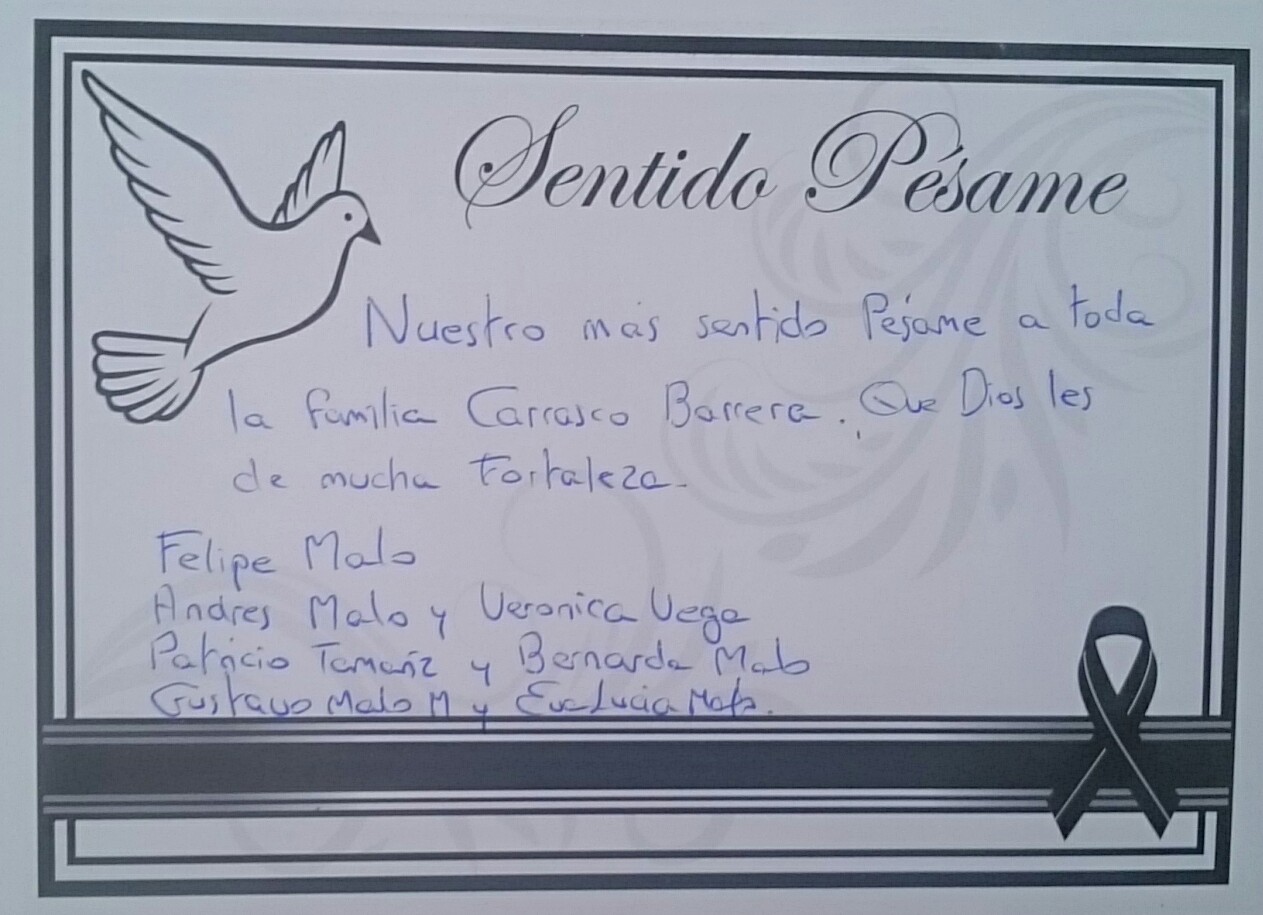 Sentido Pésame
Nuestro más sentido Pésame a toda
la familia Carrasco Barrera. Que Dios les
de mucha fortaleza.
Felipe Malo
Andres Malo y Veronica Vega
Patricio Tamariz y Bernarda Malo
Gustavo Malo M y Eva Lucía Malo.